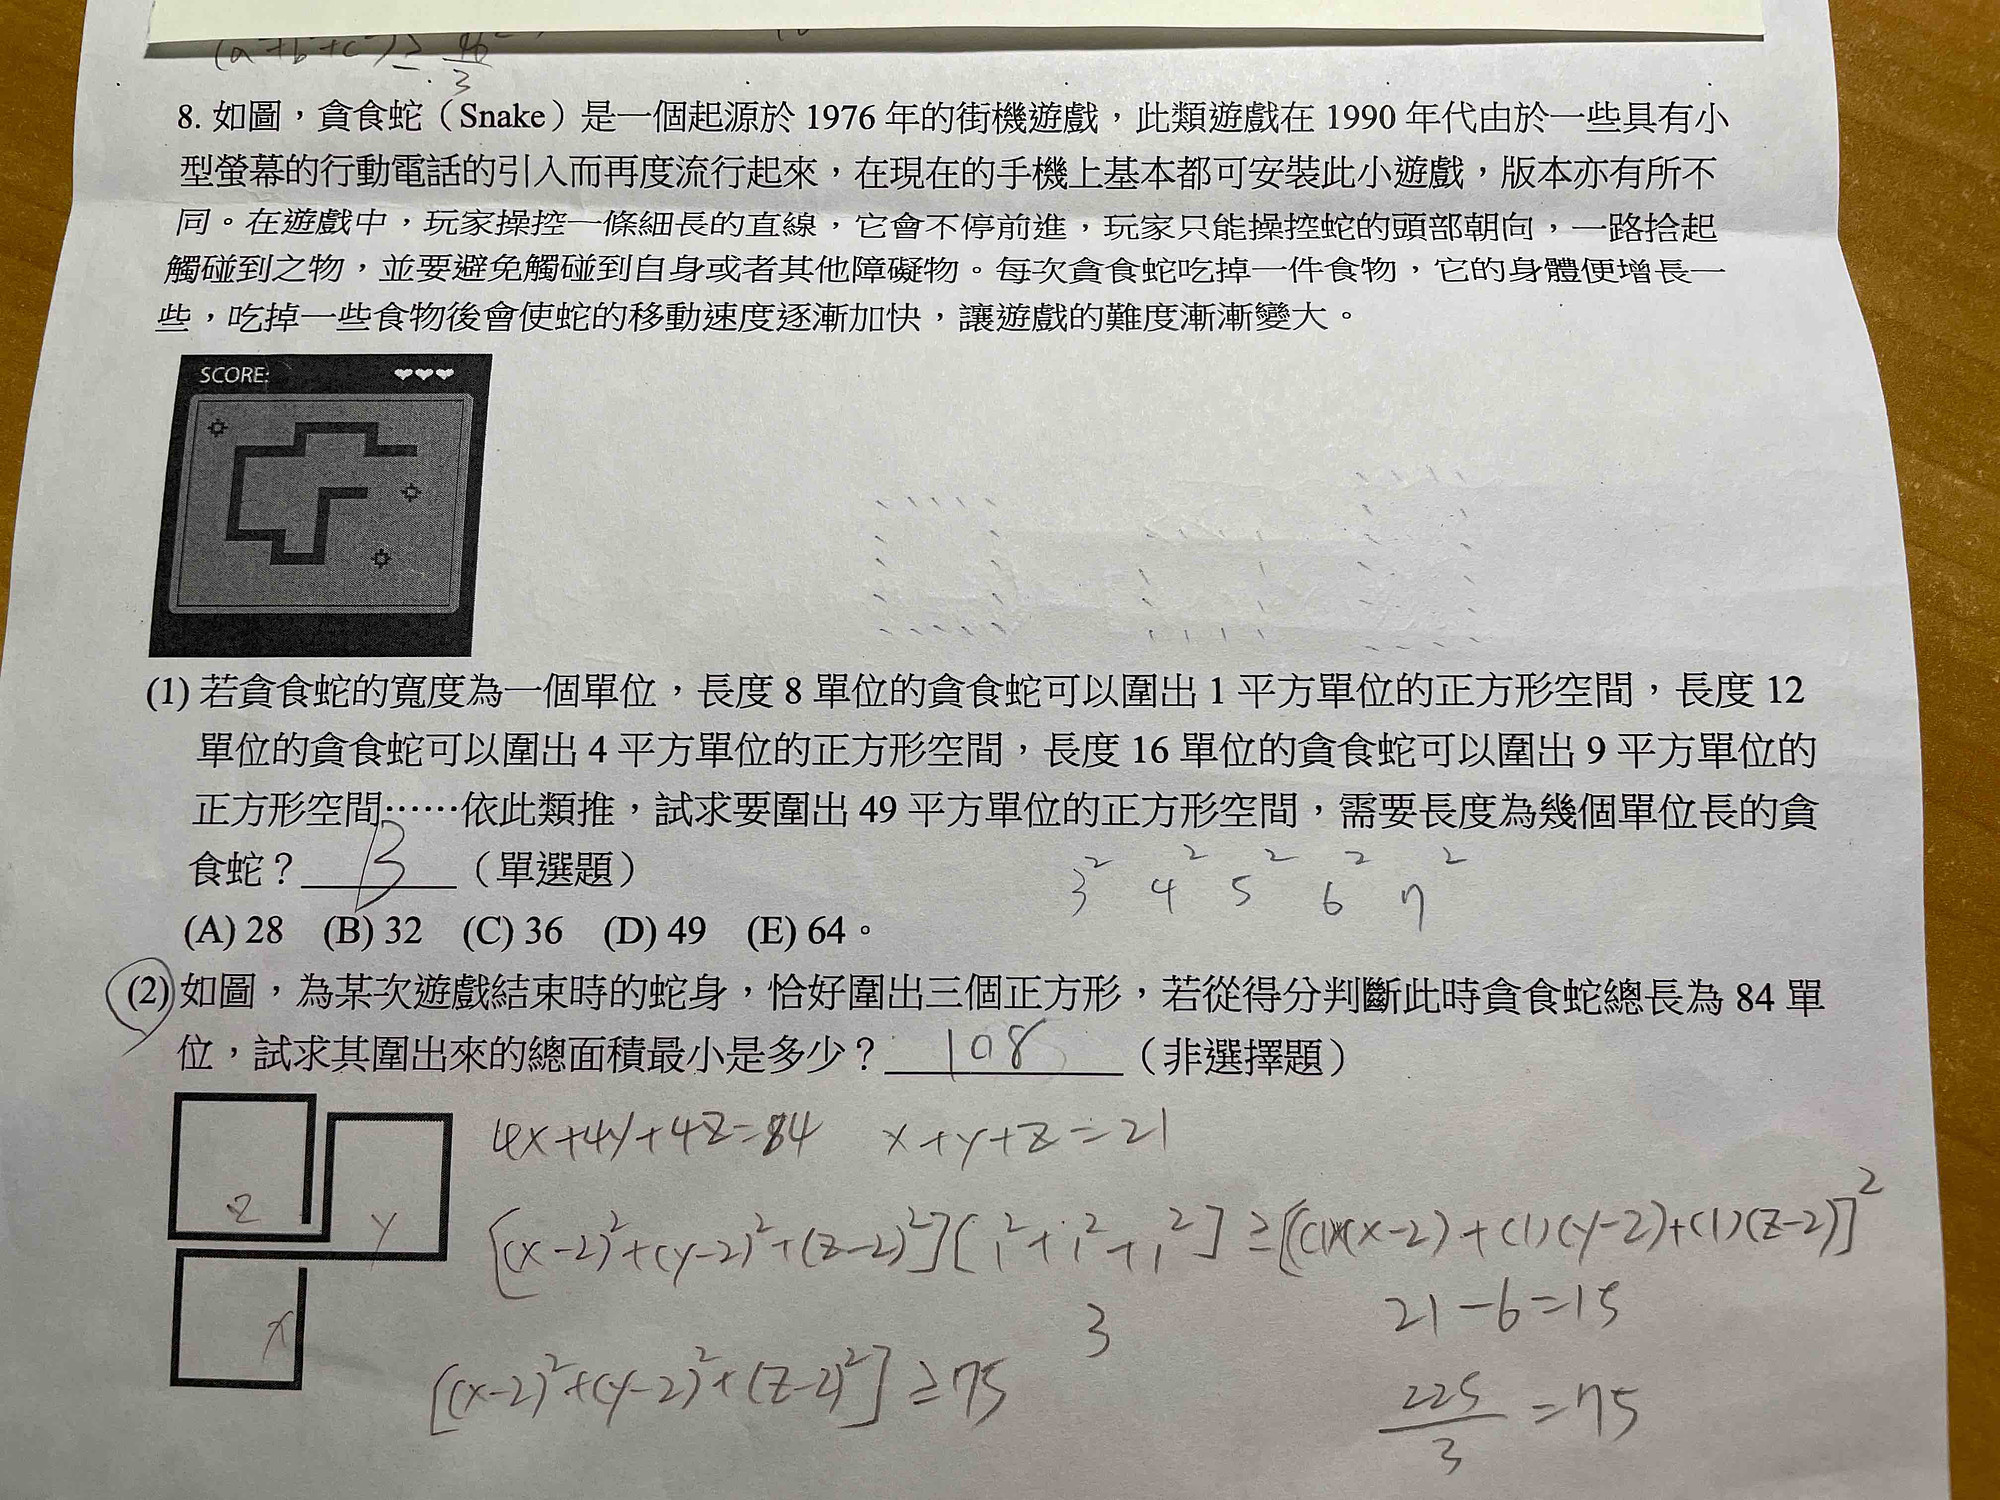 8. 如圖，貪食蛇（Snake）是一個起源於 1976 年的街機遊戲，此類遊戲在 1990 年代由於一些具有小
型螢幕的行動電話的引入而再度流行起來，在現在的手機上基本都可安裝此小遊戲，版本亦有所不
同。在遊戲中，玩家操控一條細長的直線，它會不停前進，玩家只能操控蛇的頭部朝向，一路拾起
觸碰到之物，並要避免觸碰到自身或者其他障礙物。每次貪食蛇吃掉一件食物，它的身體便增長一
些，吃掉一些食物後會使蛇的移動速度逐漸加快，讓遊戲的難度漸漸變大。
SCORE:
(1) 若貪食蛇的寬度為一個單位，長度 8 單位的貪食蛇可以圍出 1 平方單位的正方形空間，長度 12
單位的貪食蛇可以圍出 4 平方單位的正方形空間，長度 16 單位的貪食蛇可以圍出 9 平方單位的
正方形空間⋯⋯依此類推，試求要圍出 49 平方單位的正方形空間，需要長度為幾個單位長的貪
食蛇？ B （單選題）
3² 4² 5² 6² 7²
(A) 28 (B) 32 (C) 36 (D) 49 (E) 64。
(2) 如圖，為某次遊戲結束時的蛇身，恰好圍出三個正方形，若從得分判斷此時貪食蛇總長為 84 單
位，試求其圍出來的總面積最小是多少？ 108 （非選擇題）
4x+4y+4z=84 x+y+z=21
z
y
x
[(x-2)²+(y-2)²+(z-2)²][1²+1²+1²] ≥ [(1)(x-2)+(1)(y-2)+(1)(z-2)]²
3
21-6=15
[(x-2)²+(y-2)²+(z-2)²] ≥75
225/3 =75